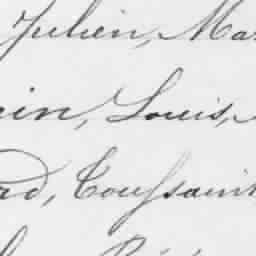 Julien, Ma
in, Louis,
rd, Toussain